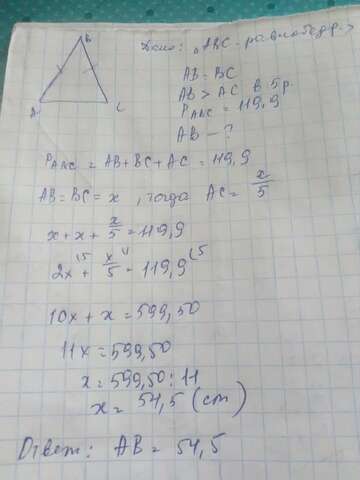 B
A
C
Дано: △ABC - равнобедр.
AB = BC
AB > AC в 5р.
P_ABC = 119,9
AB - ?
P_ABC = AB + BC + AC = 119,9
AB = BC = x , тогда AC = x/5
x + x + x/5 = 119,9
2x⁽⁵ + x/5⁽¹ = 119,9⁽⁵
10x + x = 599,50
11x = 599,50
x = 599,50 : 11
x = 54,5 (cm)
Ответ: AB = 54,5